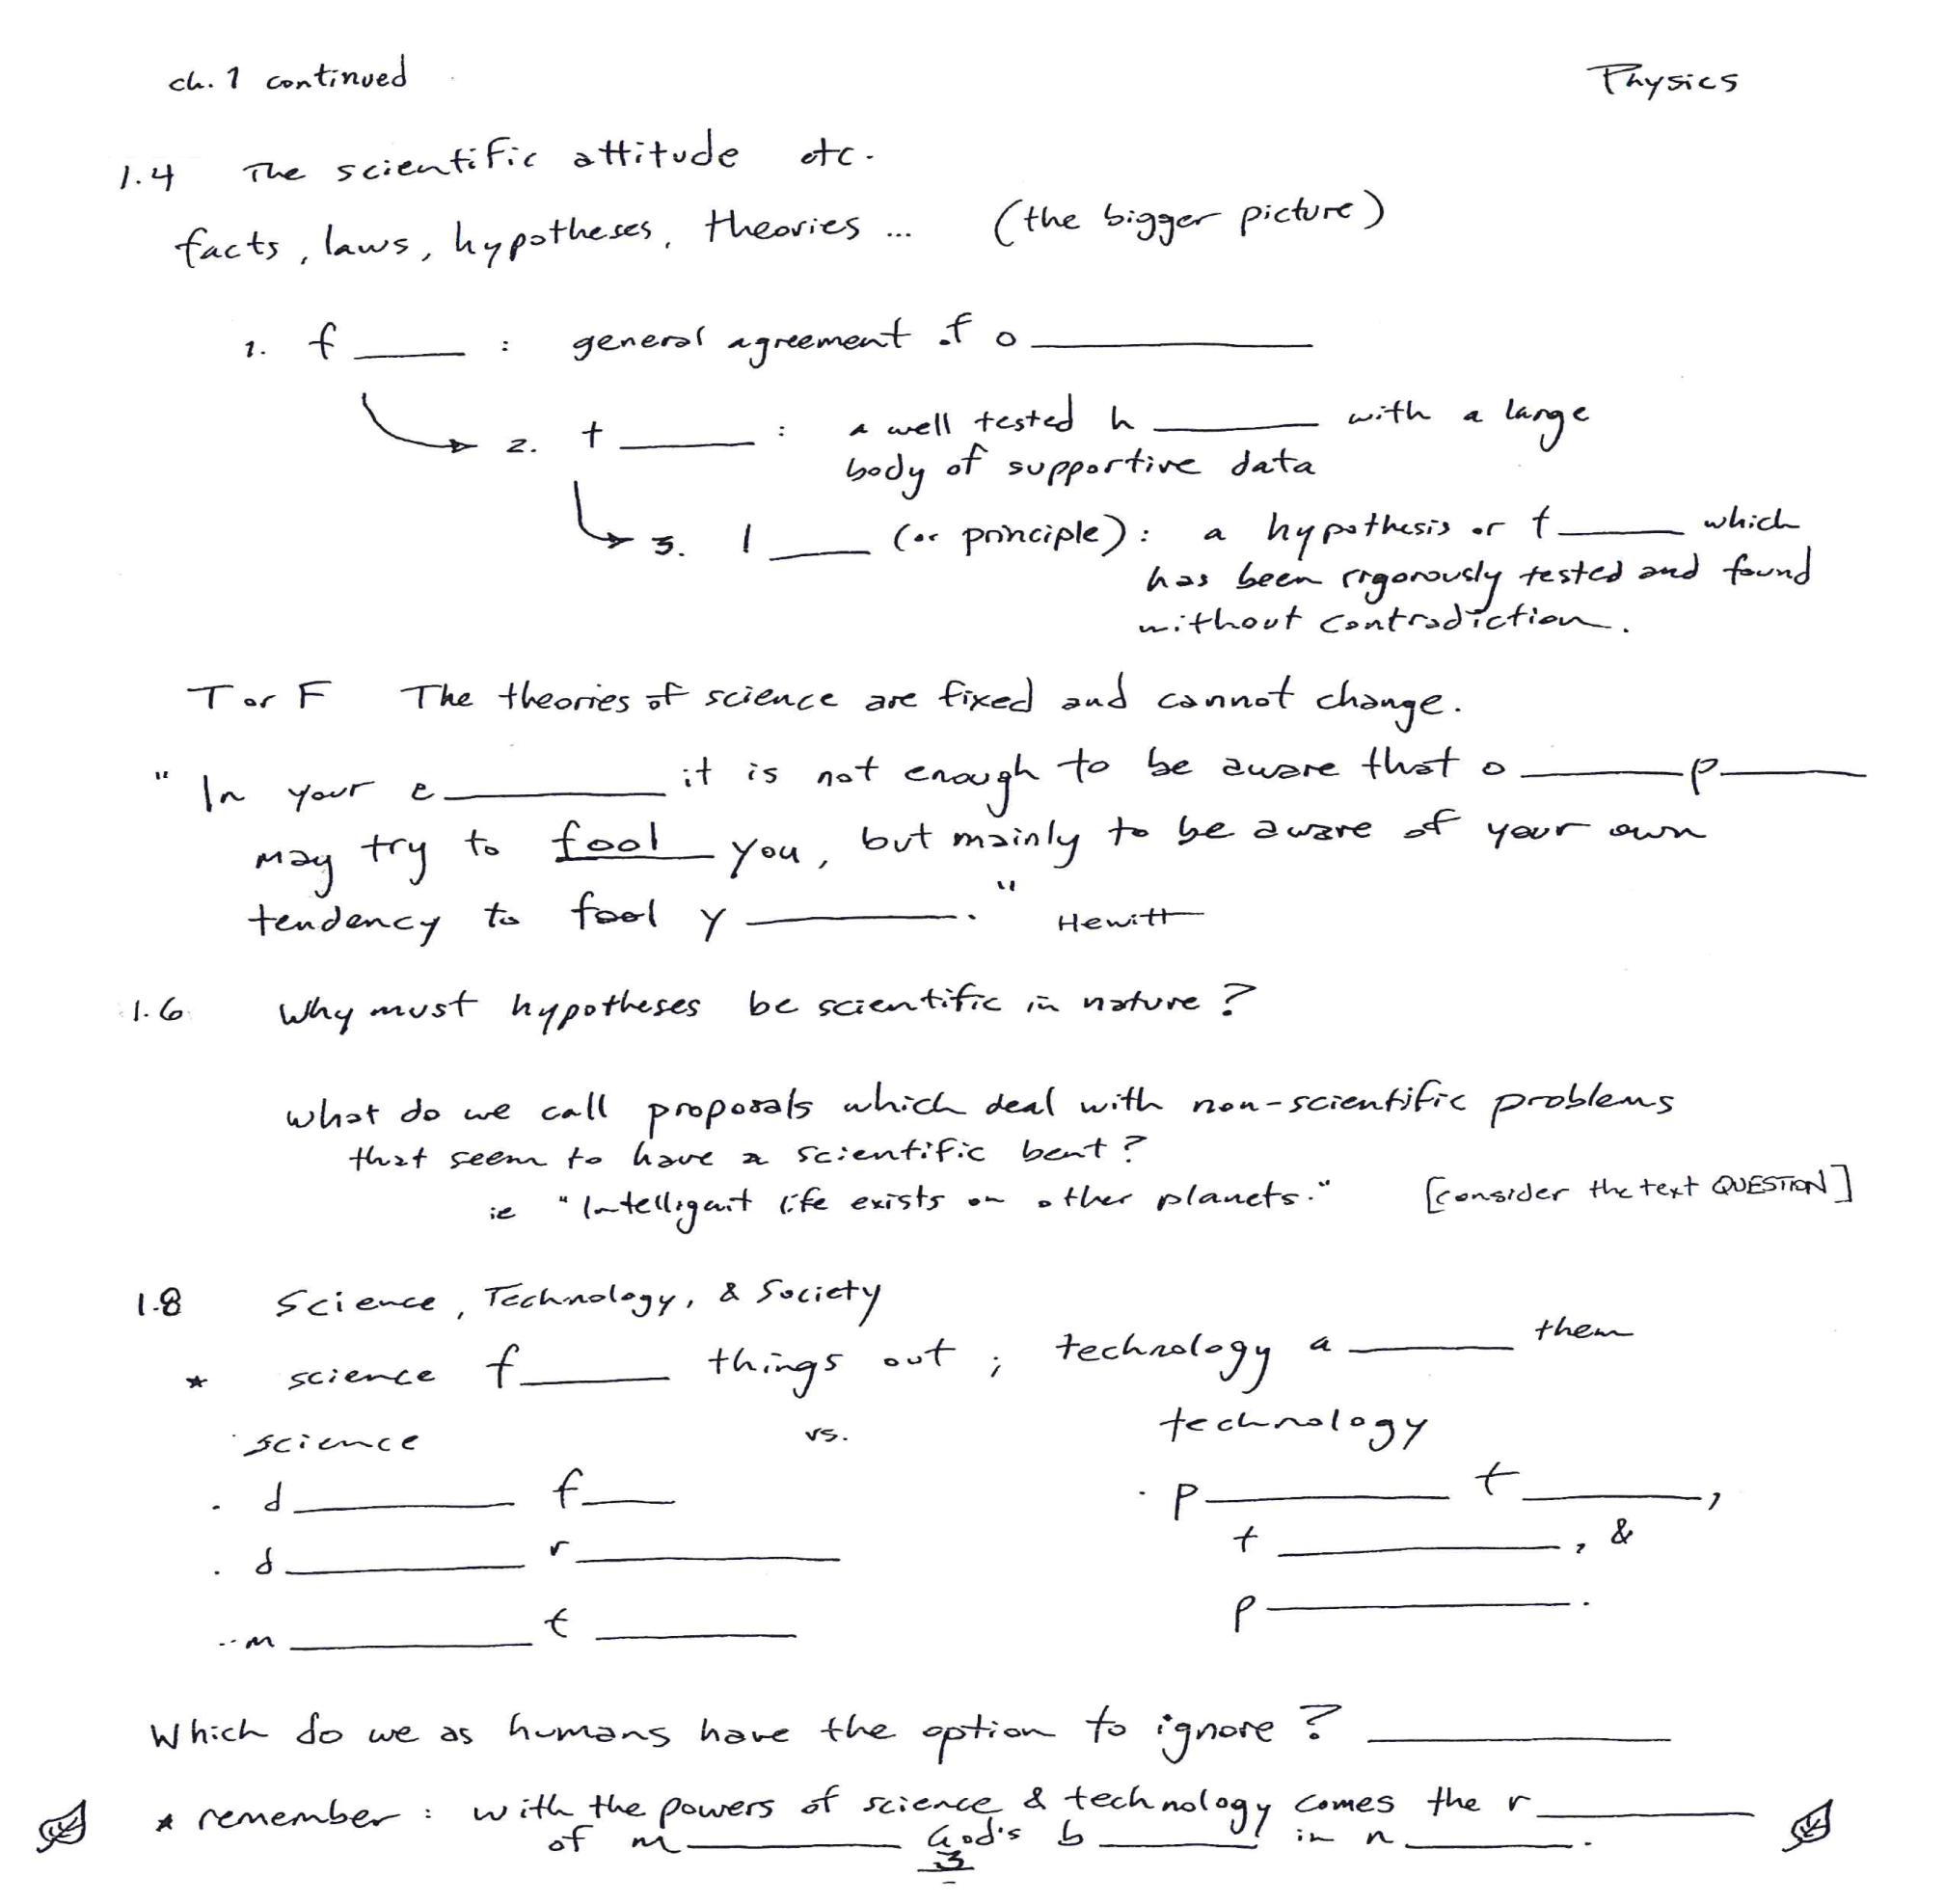 ch. 1 continued
Physics
1.4 The scientific attitude etc.
facts, laws, hypotheses, theories ... (the bigger picture)
1. f_____ : general agreement of o_____________
2. t______ : a well tested h_______ with a large
body of supportive data
3. l_____ (or principle): a hypothesis or t______ which
has been rigorously tested and found
without contradiction.
T or F The theories of science are fixed and cannot change.
"In your e__________ it is not enough to be aware that o_______p_______
may try to fool you, but mainly to be aware of your own
tendency to fool y__________." Hewitt
1.6 Why must hypotheses be scientific in nature?
What do we call proposals which deal with non-scientific problems
that seem to have a scientific bent?
ie "Intelligent life exists on other planets." [consider the text QUESTION]
1.8 Science, Technology, & Society
* science f_______ things out; technology a_______ them
science vs. technology
. d__________ f____ . p___________ t________,
. d___________ r____________ t_____________, &
. m___________ t_________ p______________.
Which do we as humans have the option to ignore? ______________
* remember: with the powers of science & technology comes the r__________
of m__________ God's b_______ in n________.
3